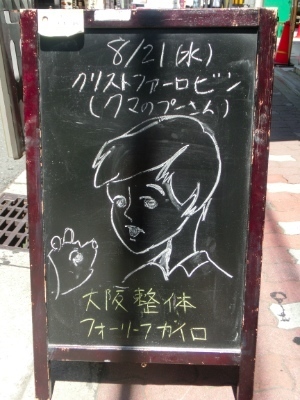 8/21(水)
クリストファーロビン
(クマのプーさん)
大阪整体
フォーリーフカイロ